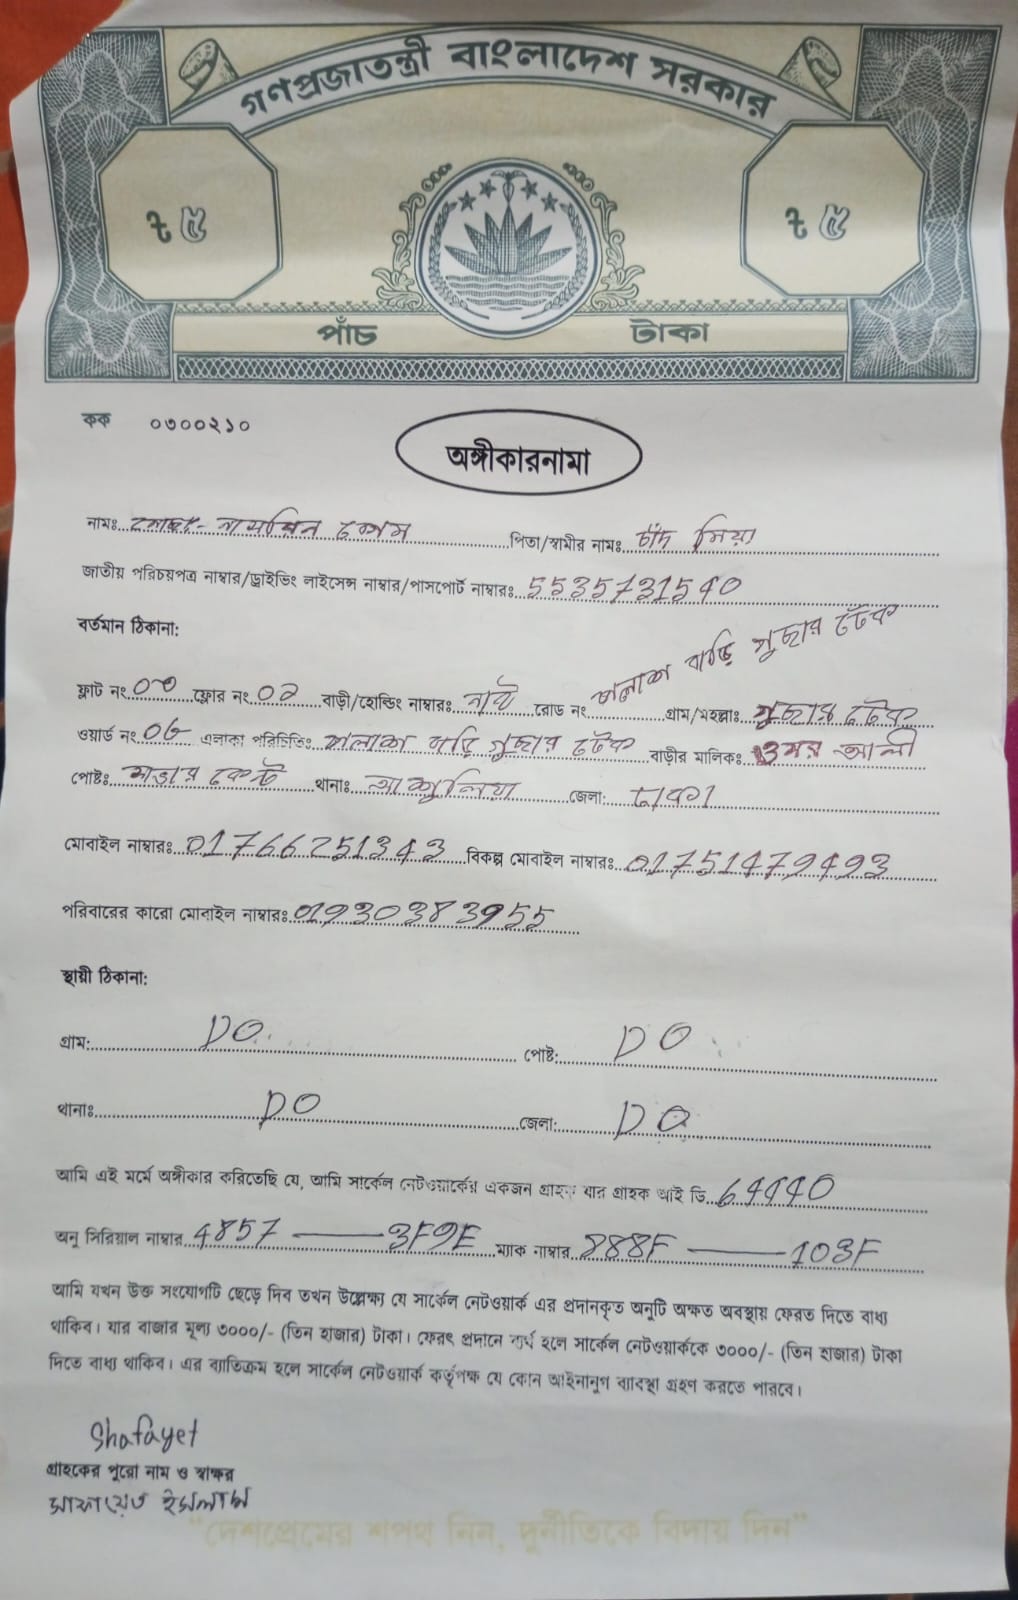 গণপ্রজাতন্ত্রী বাংলাদেশ সরকার
৳ ৫ ৳ ৫
পাঁচ টাকা
কক ০৩০০২১০
অঙ্গীকারনামা
নামঃ মোছাঃ- নাসরিন বেগম পিতা/স্বামীর নামঃ চাঁদ মিয়া
জাতীয় পরিচয়পত্র নাম্বার/ড্রাইভিং লাইসেন্স নাম্বার/পাসপোর্ট নাম্বারঃ 5535731540
বর্তমান ঠিকানা:
পলাশ বাড়ি গুছার টেক
ফ্লাট নং ফ্লোর নং ০২ বাড়ী/হোল্ডিং নাম্বারঃ নাই রোড নং গ্রাম/মহল্লাঃ গুছার টেক
ওয়ার্ড নং 06 এলাকা পরিচিতিঃ পলাশ বাড়ি গুছার টেক বাড়ীর মালিকঃ ওমর আলী
পোষ্টঃ থানাঃ আশুলিয়া জেলা: ঢাকা
মোবাইল নাম্বারঃ 01766251343 বিকল্প মোবাইল নাম্বারঃ 01751479493
পরিবারের কারো মোবাইল নাম্বারঃ 01930383955
স্থায়ী ঠিকানা:
গ্রাম: DO পোষ্ট: DO
থানাঃ DO জেলা: DO
আমি এই মর্মে অঙ্গীকার করিতেছি যে, আমি সার্কেল নেটওয়ার্কের একজন গ্রাহক যার গ্রাহক আই ডি 64440
অনু সিরিয়াল নাম্বার 4857 —— 3F9E ম্যাক নাম্বার 888F —— 103F
আমি যখন উক্ত সংযোগটি ছেড়ে দিব তখন উল্লেক্ষ্য যে সার্কেল নেটওয়ার্ক এর প্রদানকৃত অনুটি অক্ষত অবস্থায় ফেরত দিতে বাধ্য
থাকিব। যার বাজার মূল্য ৩০০০/- (তিন হাজার) টাকা। ফেরৎ প্রদানে ব্যর্থ হলে সার্কেল নেটওয়ার্ককে ৩০০০/- (তিন হাজার) টাকা
দিতে বাধ্য থাকিব। এর ব্যাতিক্রম হলে সার্কেল নেটওয়ার্ক কর্তৃপক্ষ যে কোন আইনানুগ ব্যাবস্থা গ্রহণ করতে পারবে।
Shafayet
গ্রাহকের পুরো নাম ও স্বাক্ষর
সাফায়েত ইসলাম
"দেশপ্রেমের শপথ নিন, দুর্নীতিকে বিদায় দিন"